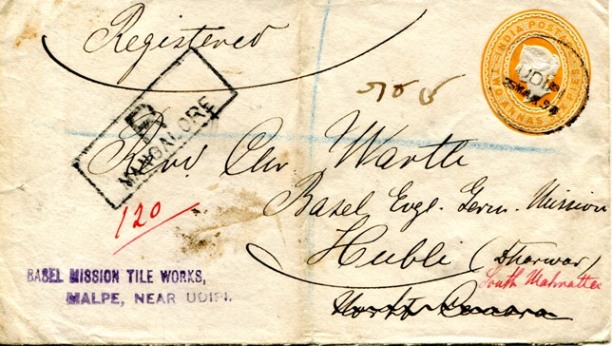 Registered
INDIA POSTAGE
UDIPI
R
MANGALORE
Revd Chr. Warth
Basel Evgl. Germ. Mission
120
Hubli (Dharwar)
South Mahratta
North Canara
BASEL MISSION TILE WORKS,
MALPE, NEAR UDIPI.